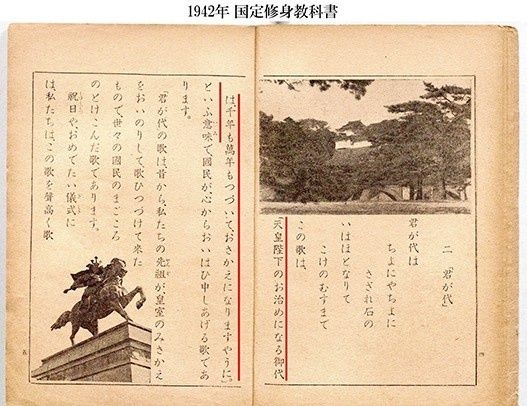 1942年 国定修身教科書
二 「君が代」
君が代は
ちよにやちよに
さざれ石の
いはほとなりて
こけのむすまで
この歌は、
「天皇陛下のお治めになる御代
は、千年も萬年もつづいておさかえになりますやうに。」
といふ意味で、國民が心からおいはひ申しあげる歌であ
ります。
「君が代」の歌は、昔から、私たちの先祖が、皇室のみさかえ
をおいのりして、歌ひつづけて來た
もので、世々の國民のまごころ
のとけこんだ歌であります。
祝日や、おめでたい儀式に
は、私たちは、この歌を聲高く歌